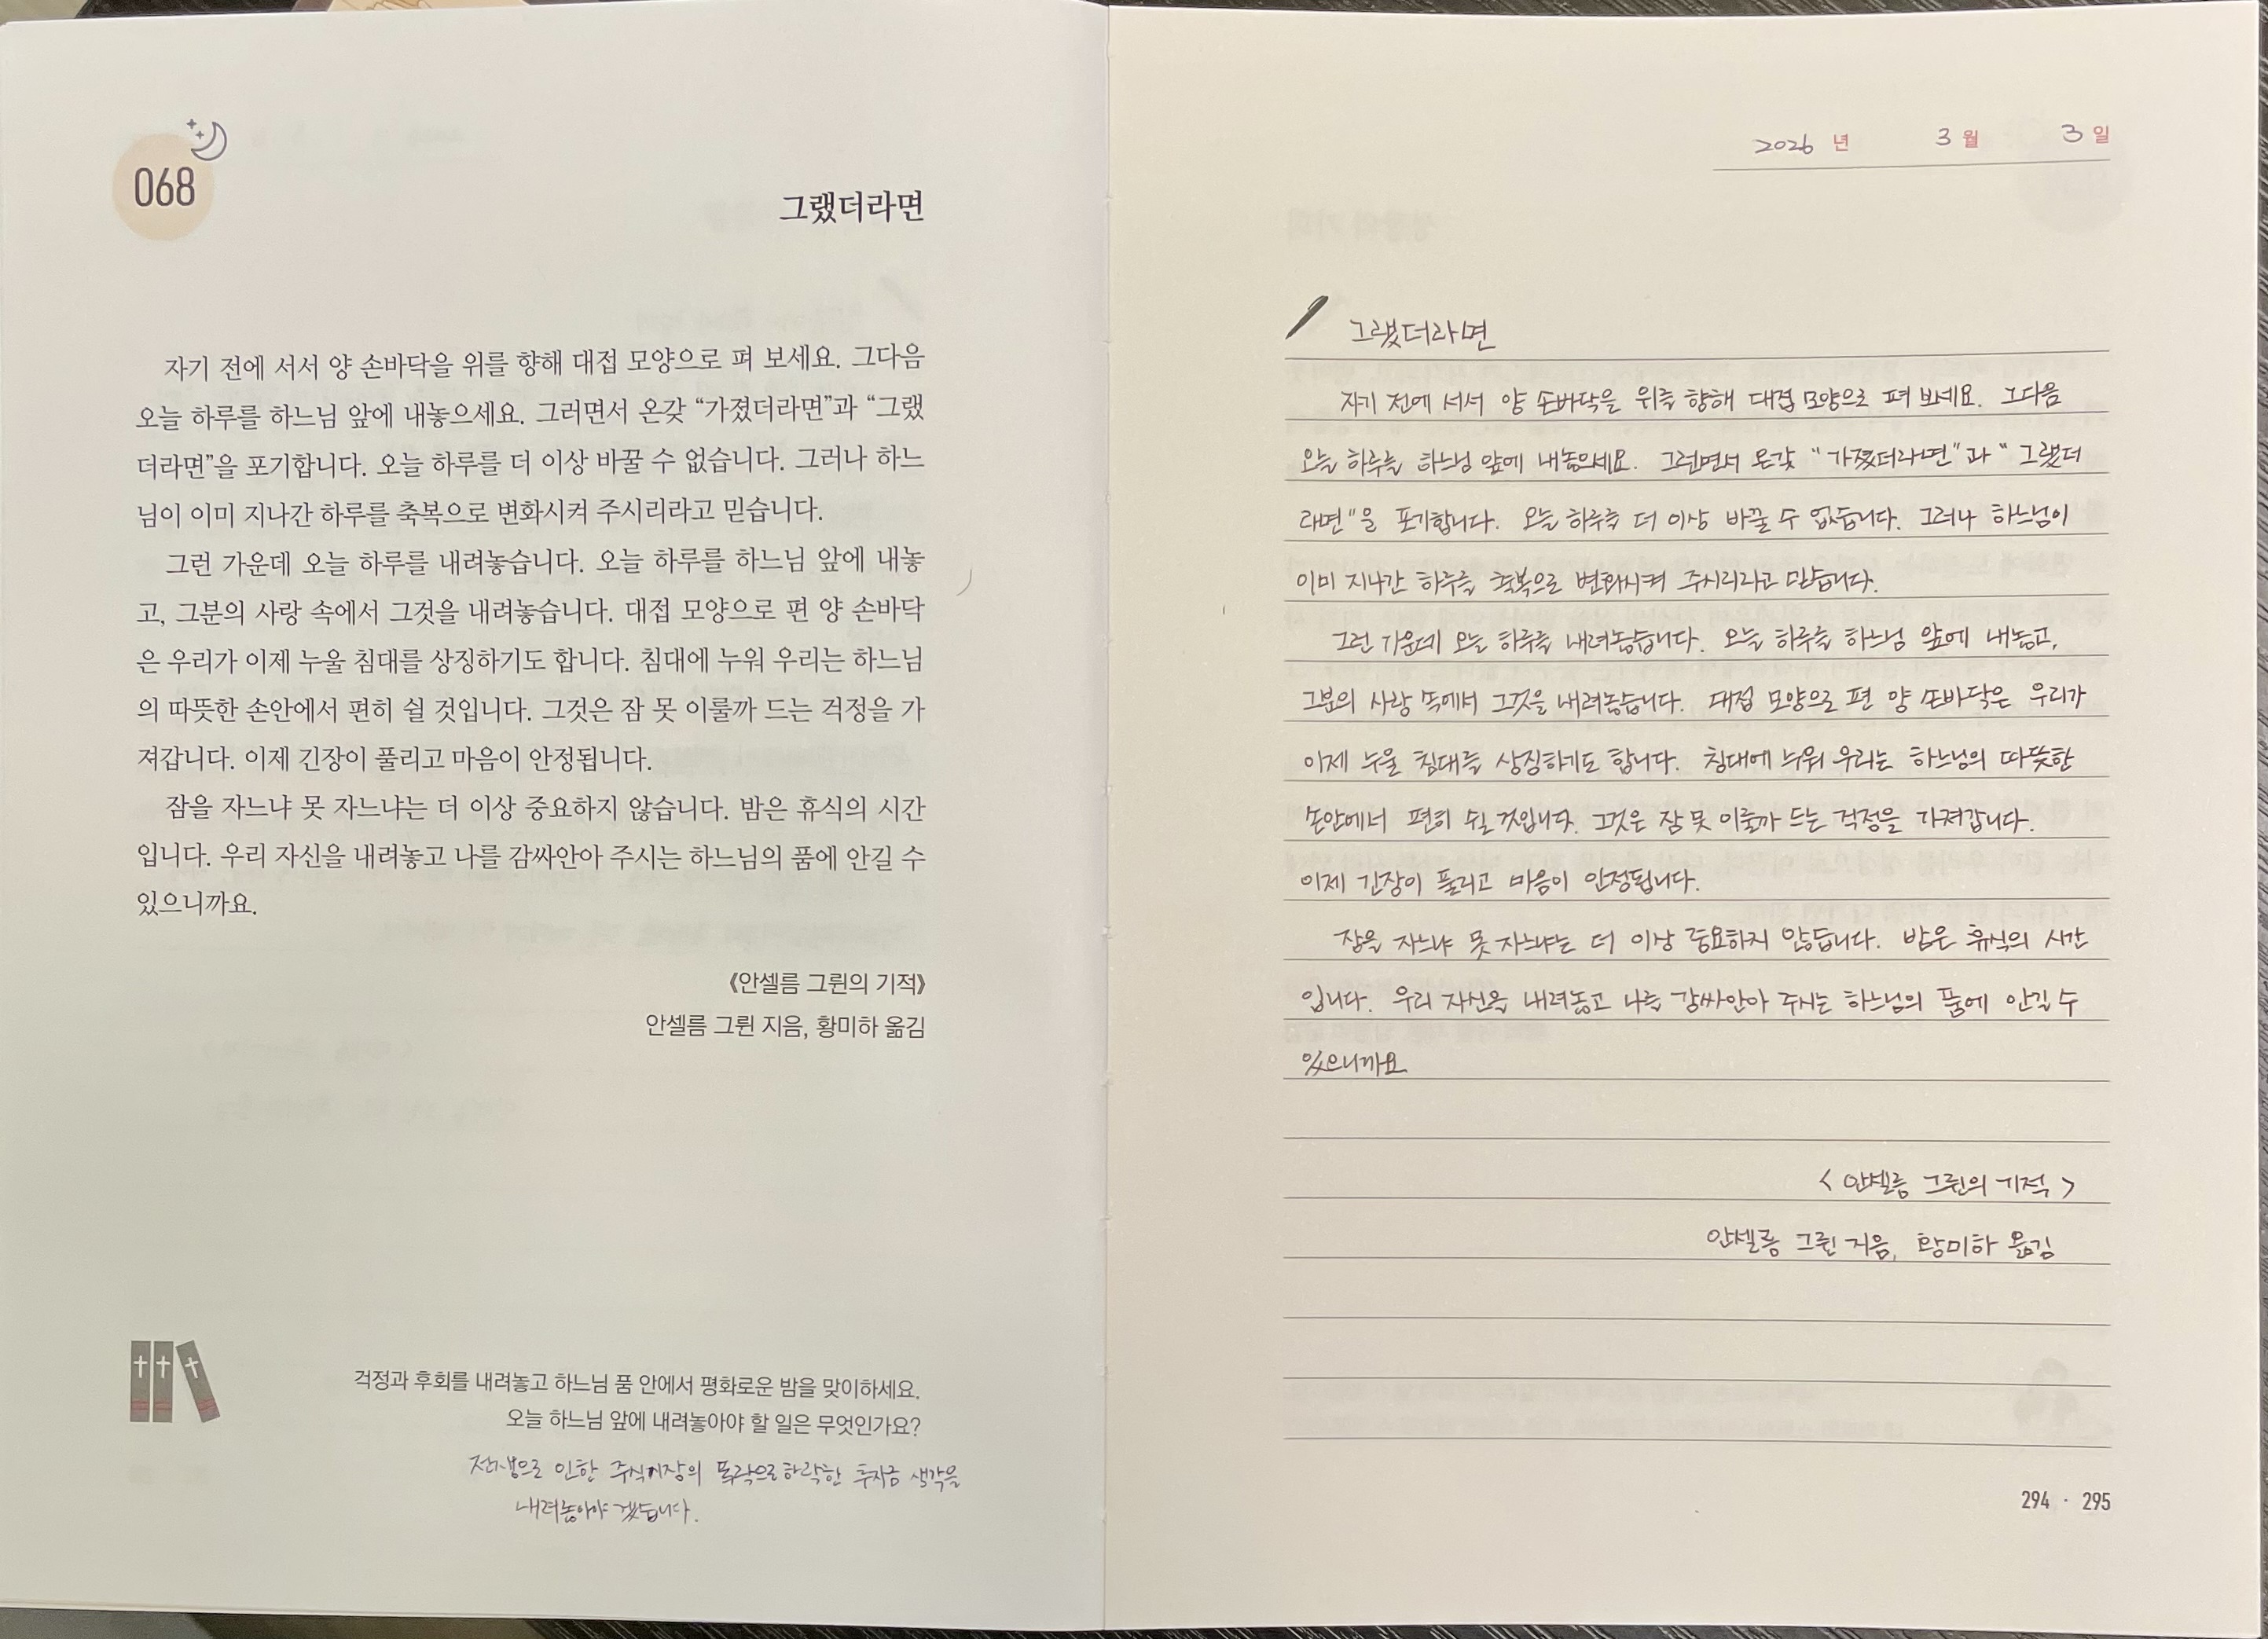 068
그랬더라면
자기 전에 서서 양 손바닥을 위를 향해 대접 모양으로 펴 보세요. 그다음
오늘 하루를 하느님 앞에 내놓으세요. 그러면서 온갖 “가졌더라면”과 “그랬
더라면”을 포기합니다. 오늘 하루를 더 이상 바꿀 수 없습니다. 그러나 하느
님이 이미 지나간 하루를 축복으로 변화시켜 주시리라고 믿습니다.
그런 가운데 오늘 하루를 내려놓습니다. 오늘 하루를 하느님 앞에 내놓
고, 그분의 사랑 속에서 그것을 내려놓습니다. 대접 모양으로 편 양 손바닥
은 우리가 이제 누울 침대를 상징하기도 합니다. 침대에 누워 우리는 하느님
의 따뜻한 손안에서 편히 쉴 것입니다. 그것은 잠 못 이룰까 드는 걱정을 가
져갑니다. 이제 긴장이 풀리고 마음이 안정됩니다.
잠을 자느냐 못 자느냐는 더 이상 중요하지 않습니다. 밤은 휴식의 시간
입니다. 우리 자신을 내려놓고 나를 감싸안아 주시는 하느님의 품에 안길 수
있으니까요.
《안셀름 그륀의 기적》
안셀름 그륀 지음, 황미하 옮김
걱정과 후회를 내려놓고 하느님 품 안에서 평화로운 밤을 맞이하세요.
오늘 하느님 앞에 내려놓아야 할 일은 무엇인가요?
전쟁으로 인한 주식시장의 폭락으로 하락한 투자금 생각을
내려놓아야 겠습니다.
2026 년 3 월 3 일
그랬더라면
자기 전에 서서 양 손바닥을 위를 향해 대접 모양으로 펴 보세요. 그다음
오늘 하루를 하느님 앞에 내놓으세요. 그러면서 온갖 “가졌더라면”과 “그랬더
라면”을 포기합니다. 오늘 하루를 더 이상 바꿀 수 없습니다. 그러나 하느님이
이미 지나간 하루를 축복으로 변화시켜 주시리라고 믿습니다.
그런 가운데 오늘 하루를 내려놓습니다. 오늘 하루를 하느님 앞에 내놓고,
그분의 사랑 속에서 그것을 내려놓습니다. 대접 모양으로 편 양 손바닥은 우리가
이제 누울 침대를 상징하기도 합니다. 침대에 누워 우리는 하느님의 따뜻한
손안에서 편히 쉴 것입니다. 그것은 잠 못 이룰까 드는 걱정을 가져갑니다.
이제 긴장이 풀리고 마음이 안정됩니다.
잠을 자느냐 못 자느냐는 더 이상 중요하지 않습니다. 밤은 휴식의 시간
입니다. 우리 자신을 내려놓고 나를 감싸안아 주시는 하느님의 품에 안길 수
있으니까요.
<안셀름 그륀의 기적>
안셀름 그륀 지음, 황미하 옮김
294 · 295